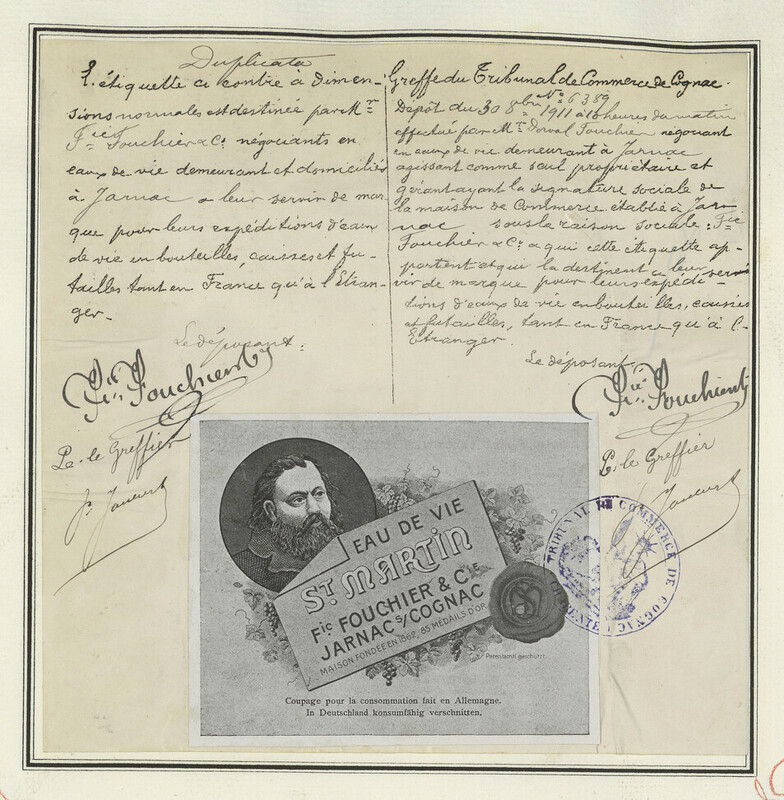 Duplicata
L'étiquette ci contre à dimen-
sions normales est destinée par Mr
Fic Fouchier & Cie négociants en
eaux de vie demeurant et domiciliés
à Jarnac a leur servir de mar
que pour leurs expéditions d'eaux
de vie en bouteilles, caisses et fu-
tailles tant en France qu'à l'Etran-
ger.-
Le déposant:
Fic Fouchier & Cie
P. le Greffier
Greffe du Tribunal de Commerce de Cognac.
No 6389
Dépôt du 30 8bre 1911 à 10 heures du matin
effectué par Mr Dorval Fouchier négociant
en eaux de vie demeurant à Jarnac
agissant comme seul propriétaire et
gérant ayant la signature sociale de
la maison de Commerce établie à Jar-
nac sous la raison sociale: Fic
Fouchier & Cie a qui cette étiquette ap-
partient et qui la destinent a leur servir
vir de marque pour leurs expédi-
tions d'eaux de vie en bouteilles, caisses
et futailles, tant en France qu'à l'
Etranger
Le déposant,
Fic Fouchier & Cie
P. le Greffier
EAU DE VIE
ST MARTIN
Fic FOUCHIER & Cie
JARNAC S/COGNAC
MAISON FONDÉE EN 1862, 85 MÉDAILS D'OR
Patentamtl. geschützt.
Coupage pour la consommation fait en Allemagne.
In Deutschland konsumfähig verschnitten.
TRIBUNAL DE COMMERCE DE COGNAC
CHARENTE